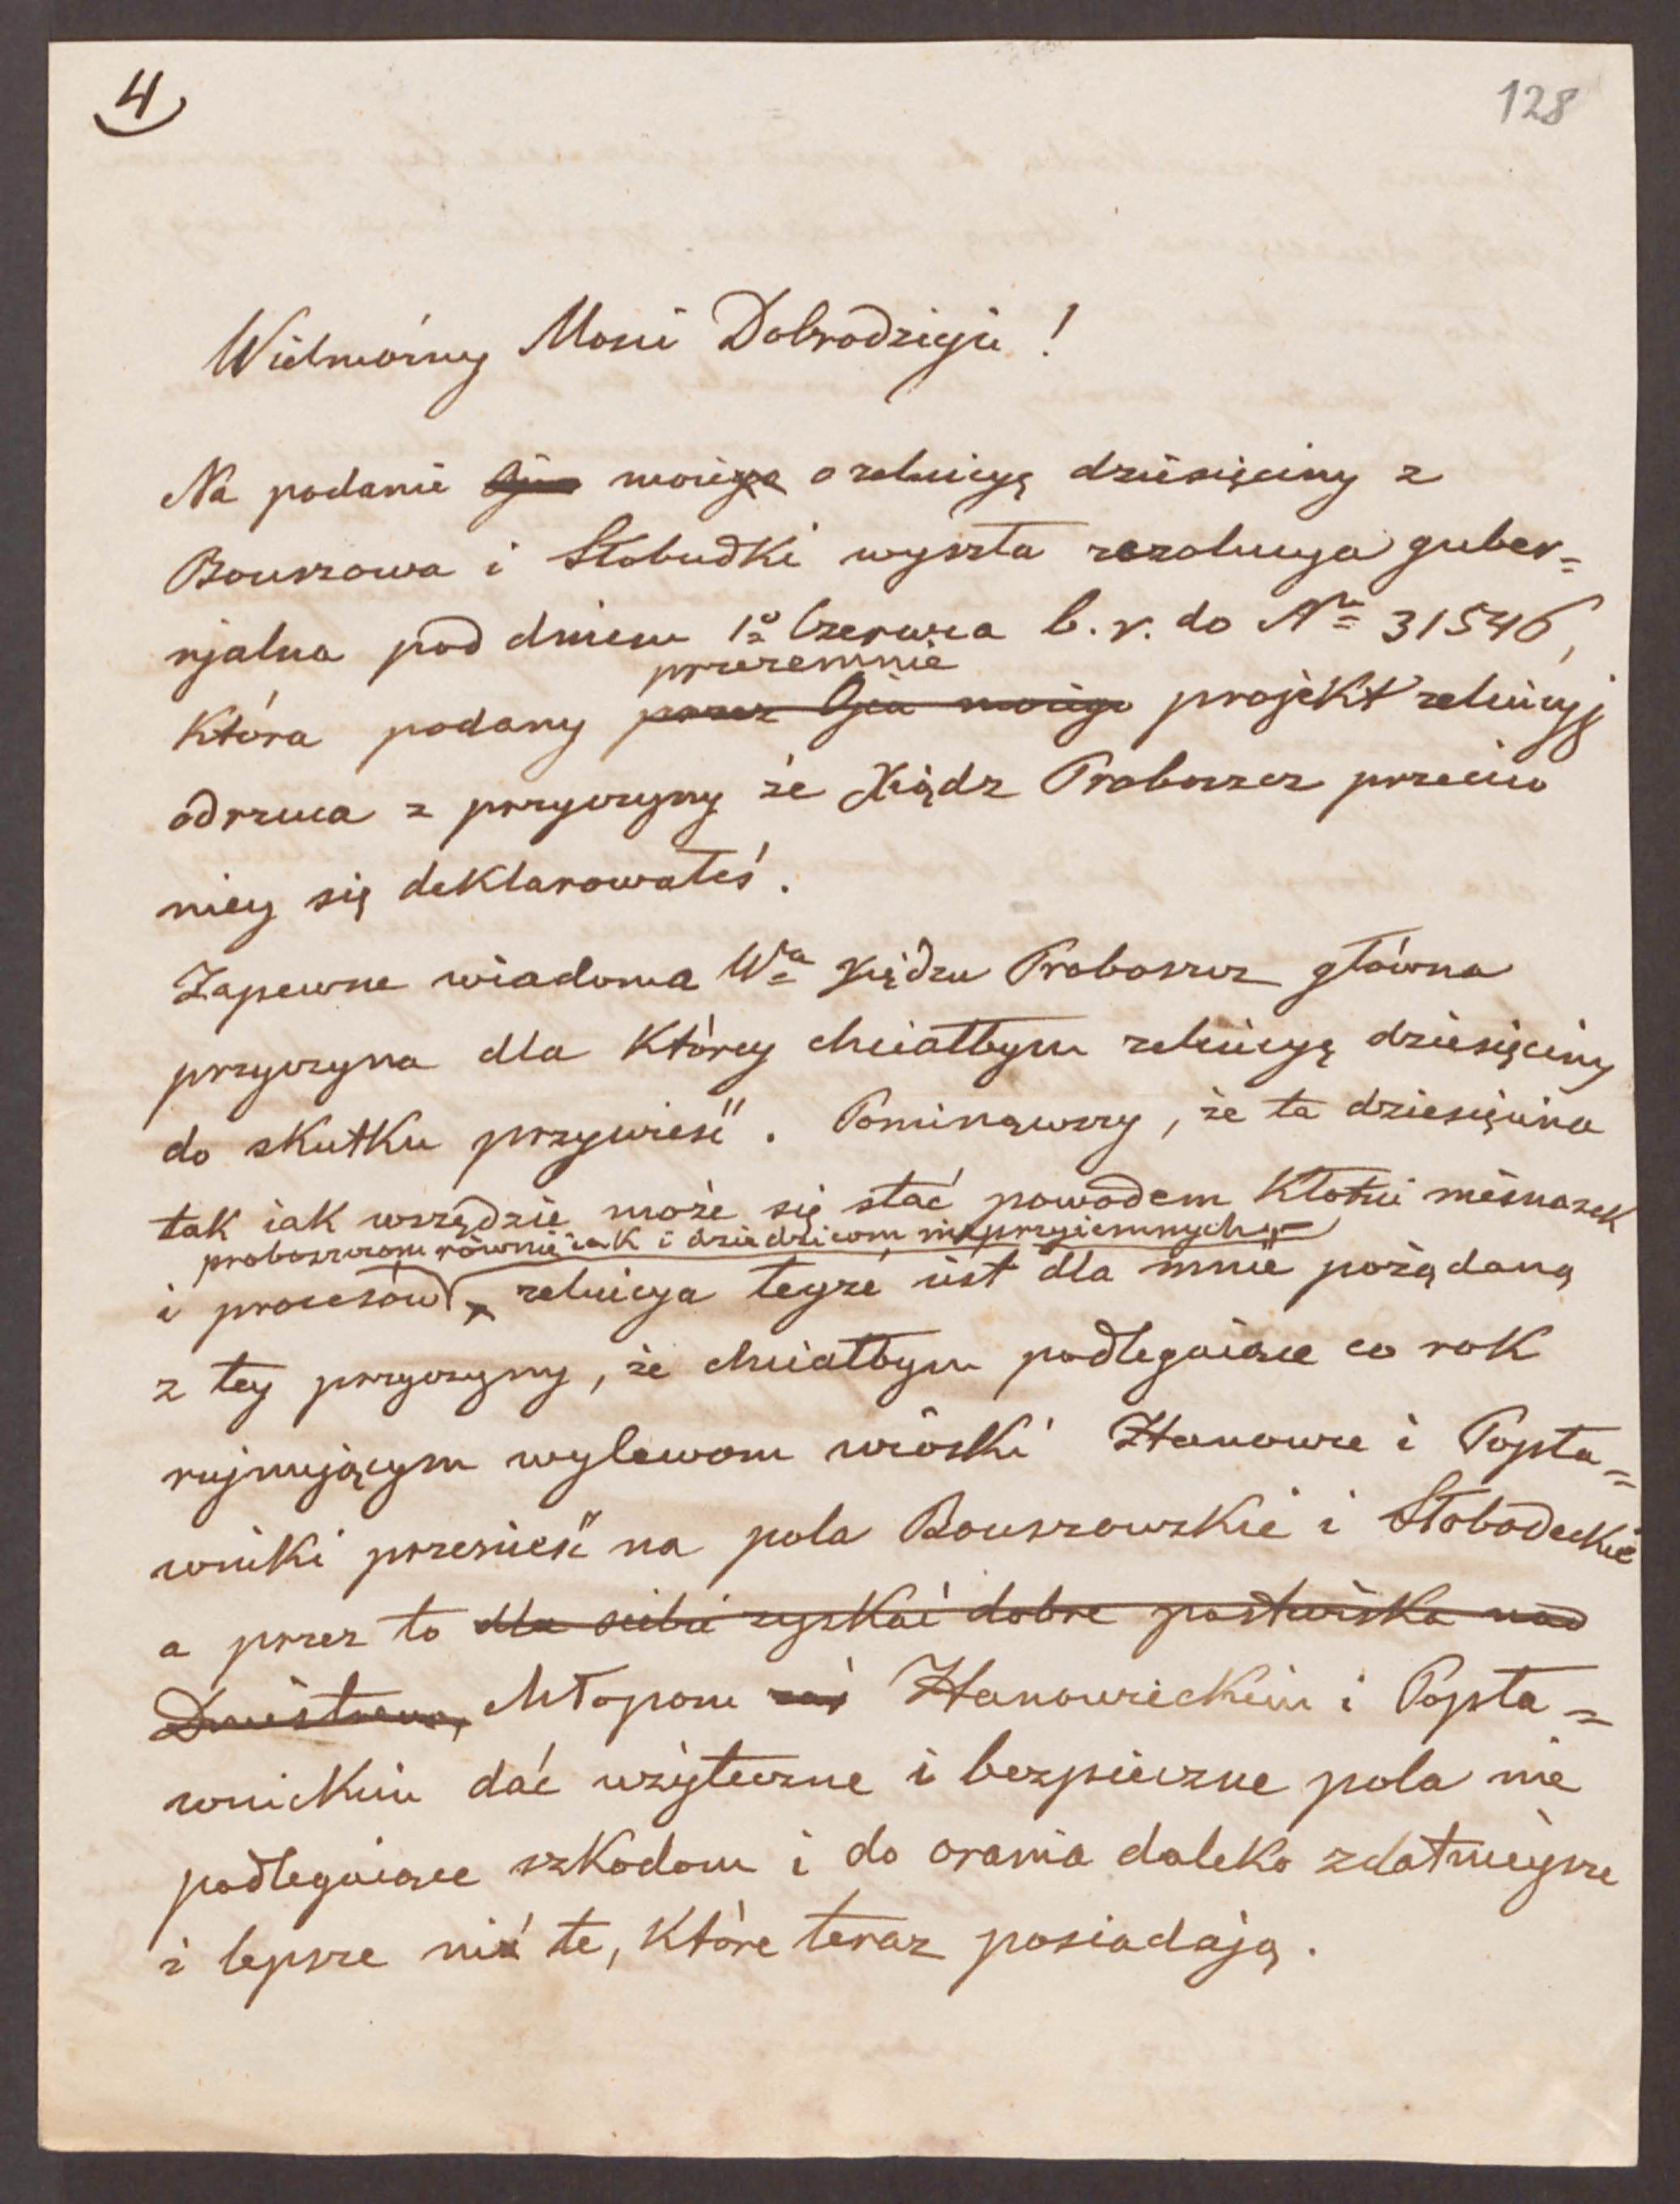 4
128
Wielmożny Mości Dobrodzieju!
Na podanie Ojca moiego o reluicyę dziesięciny z
Bouszowa i Słobudki wyszła rezolucya guber=
njalna pod dniem 1º Czerwca b. r. do Nro 31546,
przezemnie
która podany przez Ojca moiego projekt reluicyj
odrzuca z przyczyny że Xiądz Proboszcz przeciw
niey się deklarowałeś.
Zapewne wiadoma Wu Xiędzu Proboszcz główna
przyczyna dla którey chciałbym reluicyę dziesięciny
do skutku przywieść. Pominąwszy, że ta dziesięcina
tak iak wszędzie może się stać powodem kłótni niesnasek
proboszczom równie iak i dziedzicom nieprzyiemnych
i procesów reluicya teyże iest dla mnie pożądaną
z tey przyczyny, że chciałbym podlegaiące co rok
rujnującym wylewom wioski Hanowce i Popła=
wniki przenieść na pola Bouszowskie i Słobodeckie
a przez to dla siebie zyskać dobre pastwiska nad
Dniestrem, chłopom zaś Hanowieckim i Popła=
wnickim dać użyteczne i bezpieczne pola nie
podlegaiące szkodom i do orania daleko zdatnieysze
i lepsze niż te, które teraz posiadają.